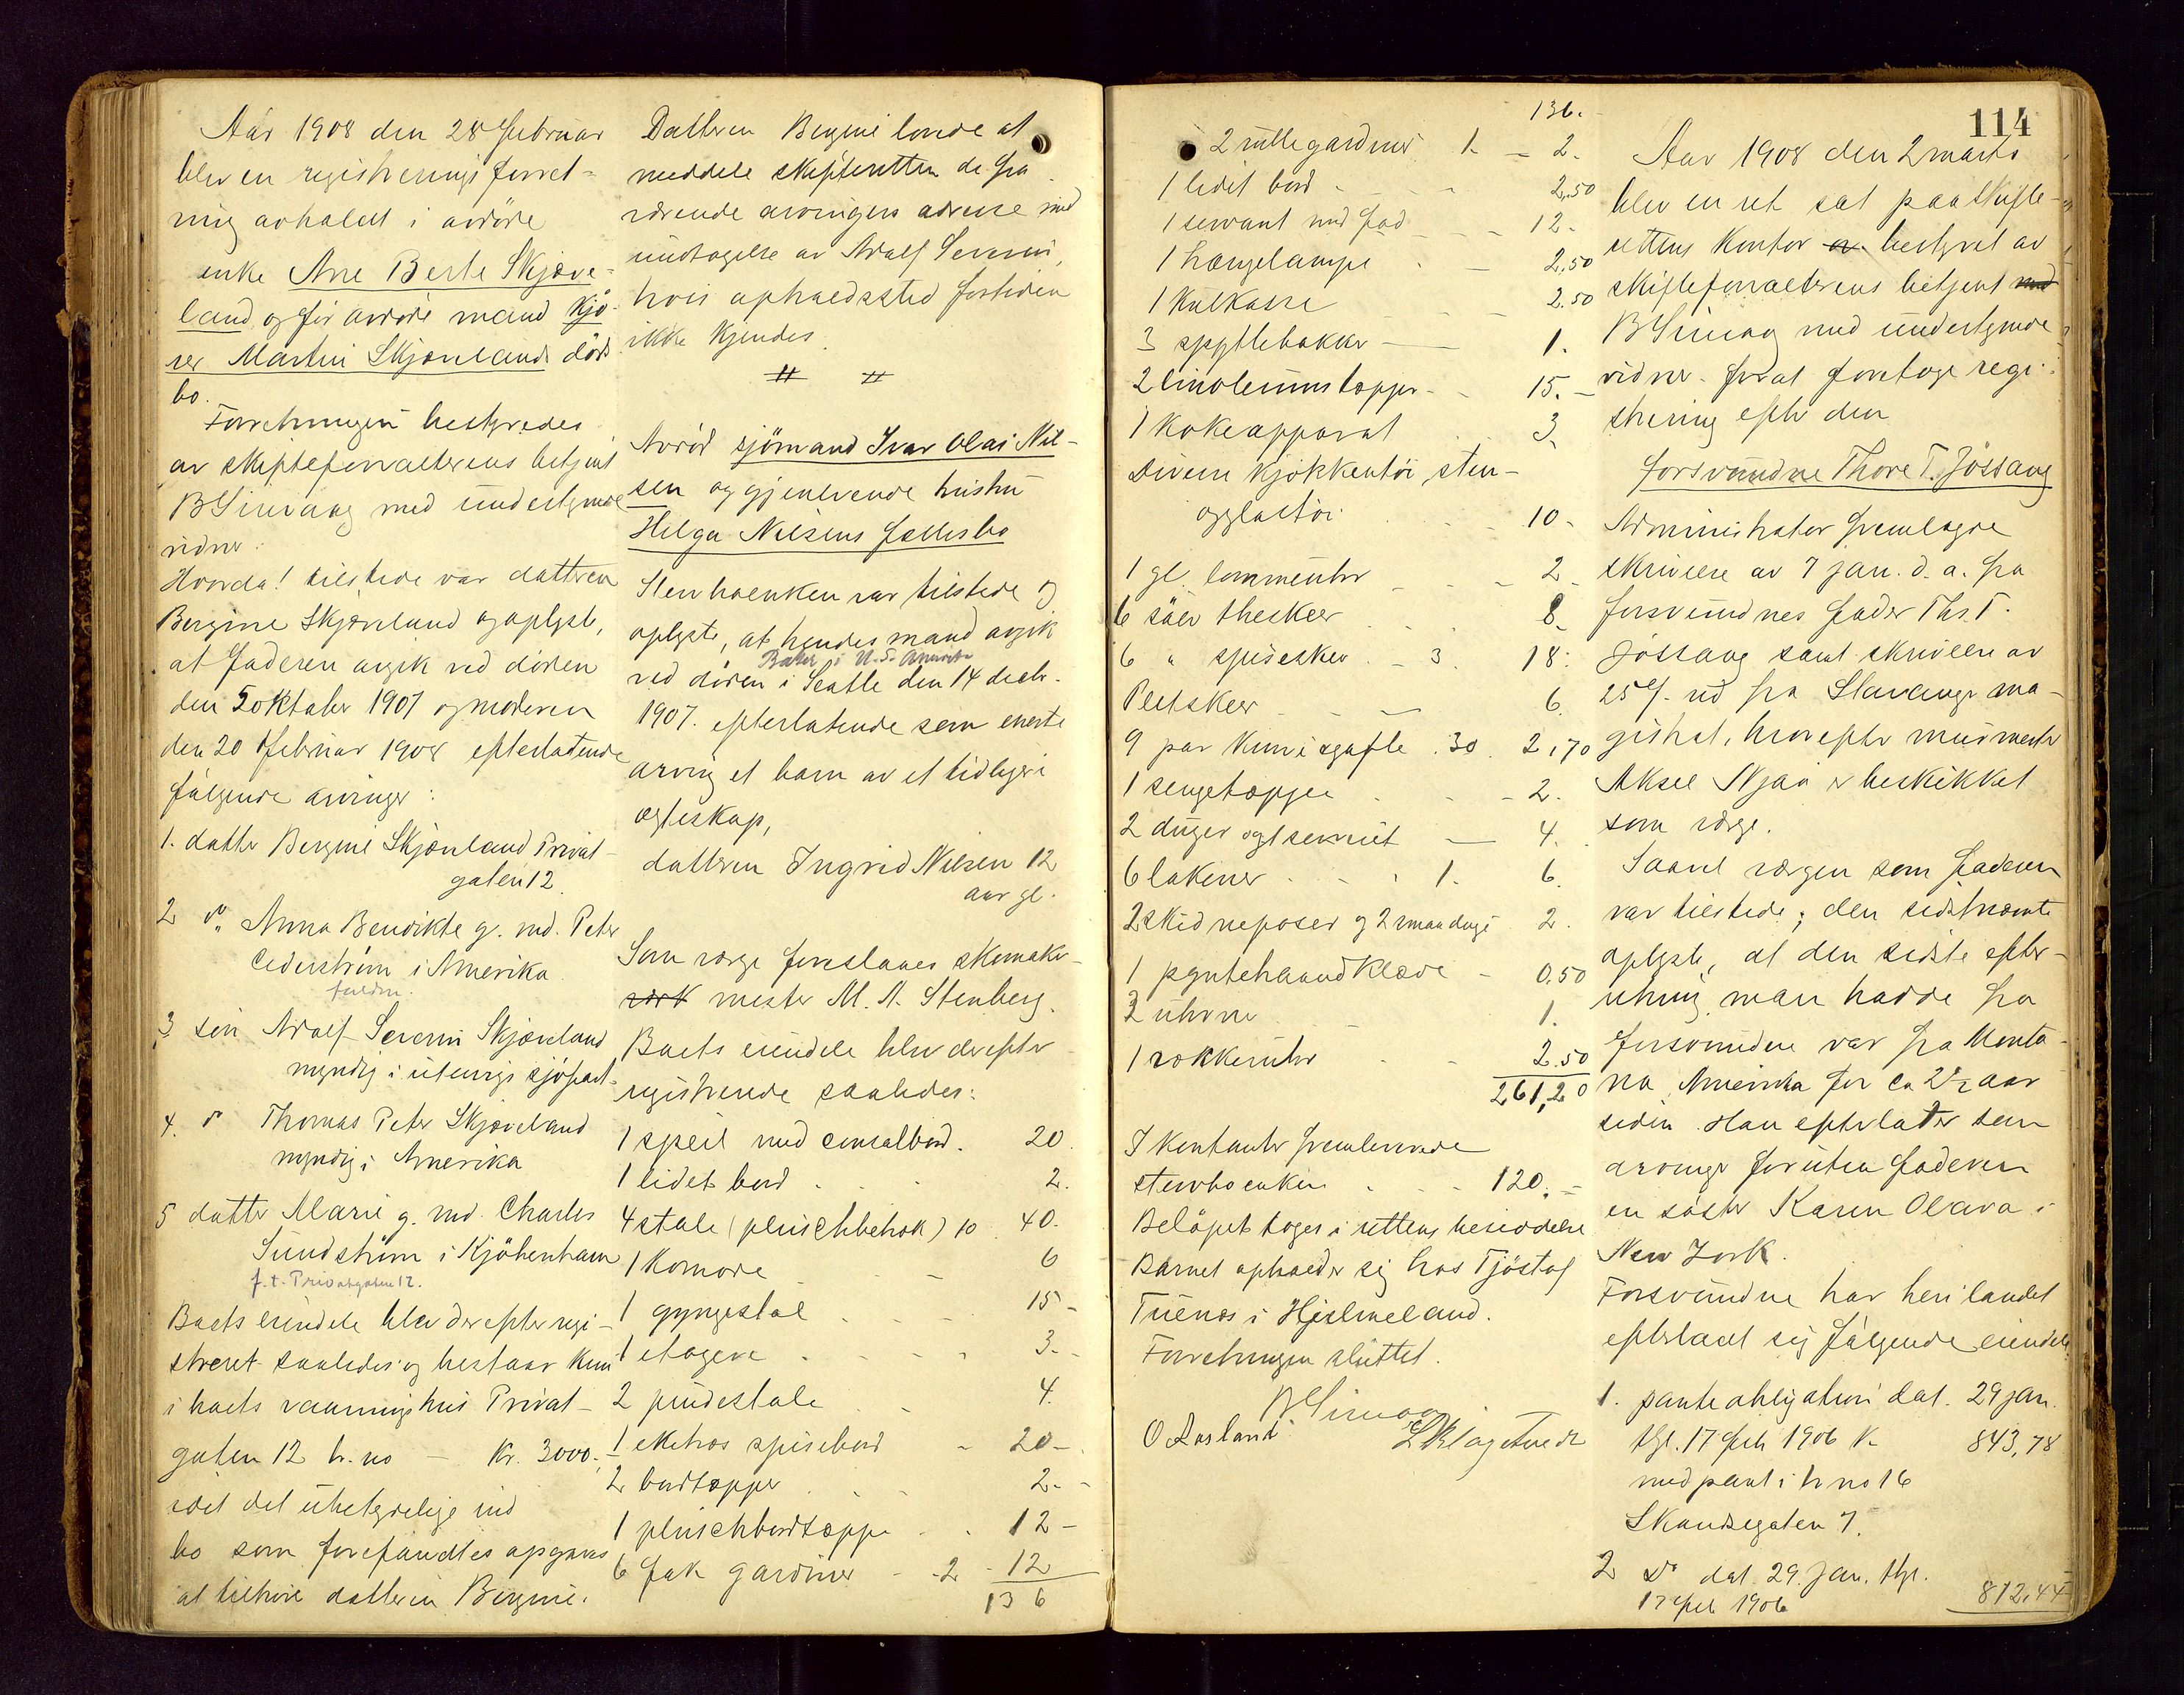 Aar 1908 den 28 februar
blev en registreringsforret-
ning avholdt i avdöde
enke Ane Berte Skjæve-
land og för avdöde mand Kjö-
rer Martin Skjævelands döds
bo.
Forretningen bestyredes
av skifteforvalterens betjent
B Sirevaag med undertegnede
vidner.
Hvorda! tilstede var datteren
Bergine Skjæveland og oplyste,
at faderen avgik ved döden
den 5 oktober 1907 og moderen
den 20 februar 1908 efterlatende
fölgende arvinger:
1. datter Bergine Skjæveland Privat-
gaten 12.
2 do. Anna Bendikte g. md. Peter
Cederström i Amerika
3 sön Adolf Severin Skjæveland
myndig i utenrigs sjöfart.
4. do Thomas Peter Skjæveland
myndig i Amerika
5 datter Marie g. md. Charles
Sundström i Kjöbenhavn
f. t. Privatgaten 12.
Boets eiendele blev derefter regi-
streret saaledes og bestaar kun
i boets vaaningshus Privat-
gaten 12 br. no — Kr. 3000.
idet det ubetydelige ind
bo som forefandtes opgaves
at tilhöre datteren Bergine.
Datteren Bergine lovede at
meddele skifteretten de fra
værende arvingers adresse med
undtagelse av Adolf Severin,
hvis opholdssted fortiden
ikke kjendes.
Avdöd sjömand Ivar Olai Nil-
sen og gjenlevende hustru
Helga Nilsens fællesbo
Stervboenken var tilstede og
oplyste, at hendes mand avgik
Baker i U.S. Amerika
ved döden i Seatle den 14 decbr.
1907. efterlatende som eneste
arving et barn av et tidligere
egteskap,
datteren Ingrid Nilsen 12
aar gl.
Som værge foreslaaes skomaker-
mester M. A. Stenberg.
Boets eiendele blev derefter
registrerede saaledes:
1 speil med consolbord. 20.
1 lidet bord 2.
4 stole (pluschbetrok) 10 40.
1 Komode 6
1 gyngestol 15-
1 etagere 3.-
2 pindestole 4.
1 eketræs spisebord 20-
2 bordtæpper 2.-
1 pluschbordtæppe 12-
6 fak gardiner 2 12
136
136.
2 rullegardiner 1. 2.
1 lidet bord 2,50
1 servant med fad 12.
1 hængelampe 2.50
1 Kulkasse 2.50
3 spyttebakker 1.
2 linoleumstæpper 15.-
1 Kokeapparat 3.
Diverse kjökkentöi, sten-
og glastöi 10-
1 gl. lommeuhr 2.
6 sölv theskeer 8.
6 " spiseskeer 3. 18.
Pletskeer 6.
9 par Kniv & gafle .30 2,70
1 sengetæppe 2.
2 duger og 1 serviet 4.
6 lakener 1. 6.
2 skidneposer og 2 smaa duge 2.
1 pyntehaandklæde 0,50
3 uhrne 1.
1 vækkeruhr 2.50
261,20
I Kontanter fremleverede
stervboenken 120.-
Belöpet toges i rettens besiddelse
Barnet opholder sig hos Tjöstof
Tuenæs i Hjelmeland.
Forretningen sluttet.
B Sirevaag
O Rosland
114
Aar 1908 den 2 marts
blev en ret sat paa Skifte-
rettens Kontor bestyret av
skifteforvalterens betjent med
B Sirevaag med undertegnede
vidner. for at foretage regi-
strering efter den
forsvundne Thore T. Jössang
Administrator fremlagde
skrivelse av 7 jan. d. a. fra
forsvundnes fader Ths. T.
Jössang samt skrivelse av
25 f. m. fra Stavanger ma-
gistrat, hvorefter murmester
Aksel Njaa er beskikket
som værge.
Saavel værgen som faderen
var tilstede; den sidstnævnte
oplyste, at den sidste efter-
retning man hadde fra
forsvundne var fra Monta-
na Amerika for ca 2½ aar
siden. Han efterlater som
arvinger foruten faderen
en söster Karen Olava i
New York.
Forsvundne har her i landet
efterladt sig fölgende eiendele
1. panteobligation dat. 29 jan.
tgl. 17 feb 1906 K. 843,78
med pant i br no 16
Skandsegaten 7.
2 do dat. 29. jan. tgl.
17 feb 1906 812.44